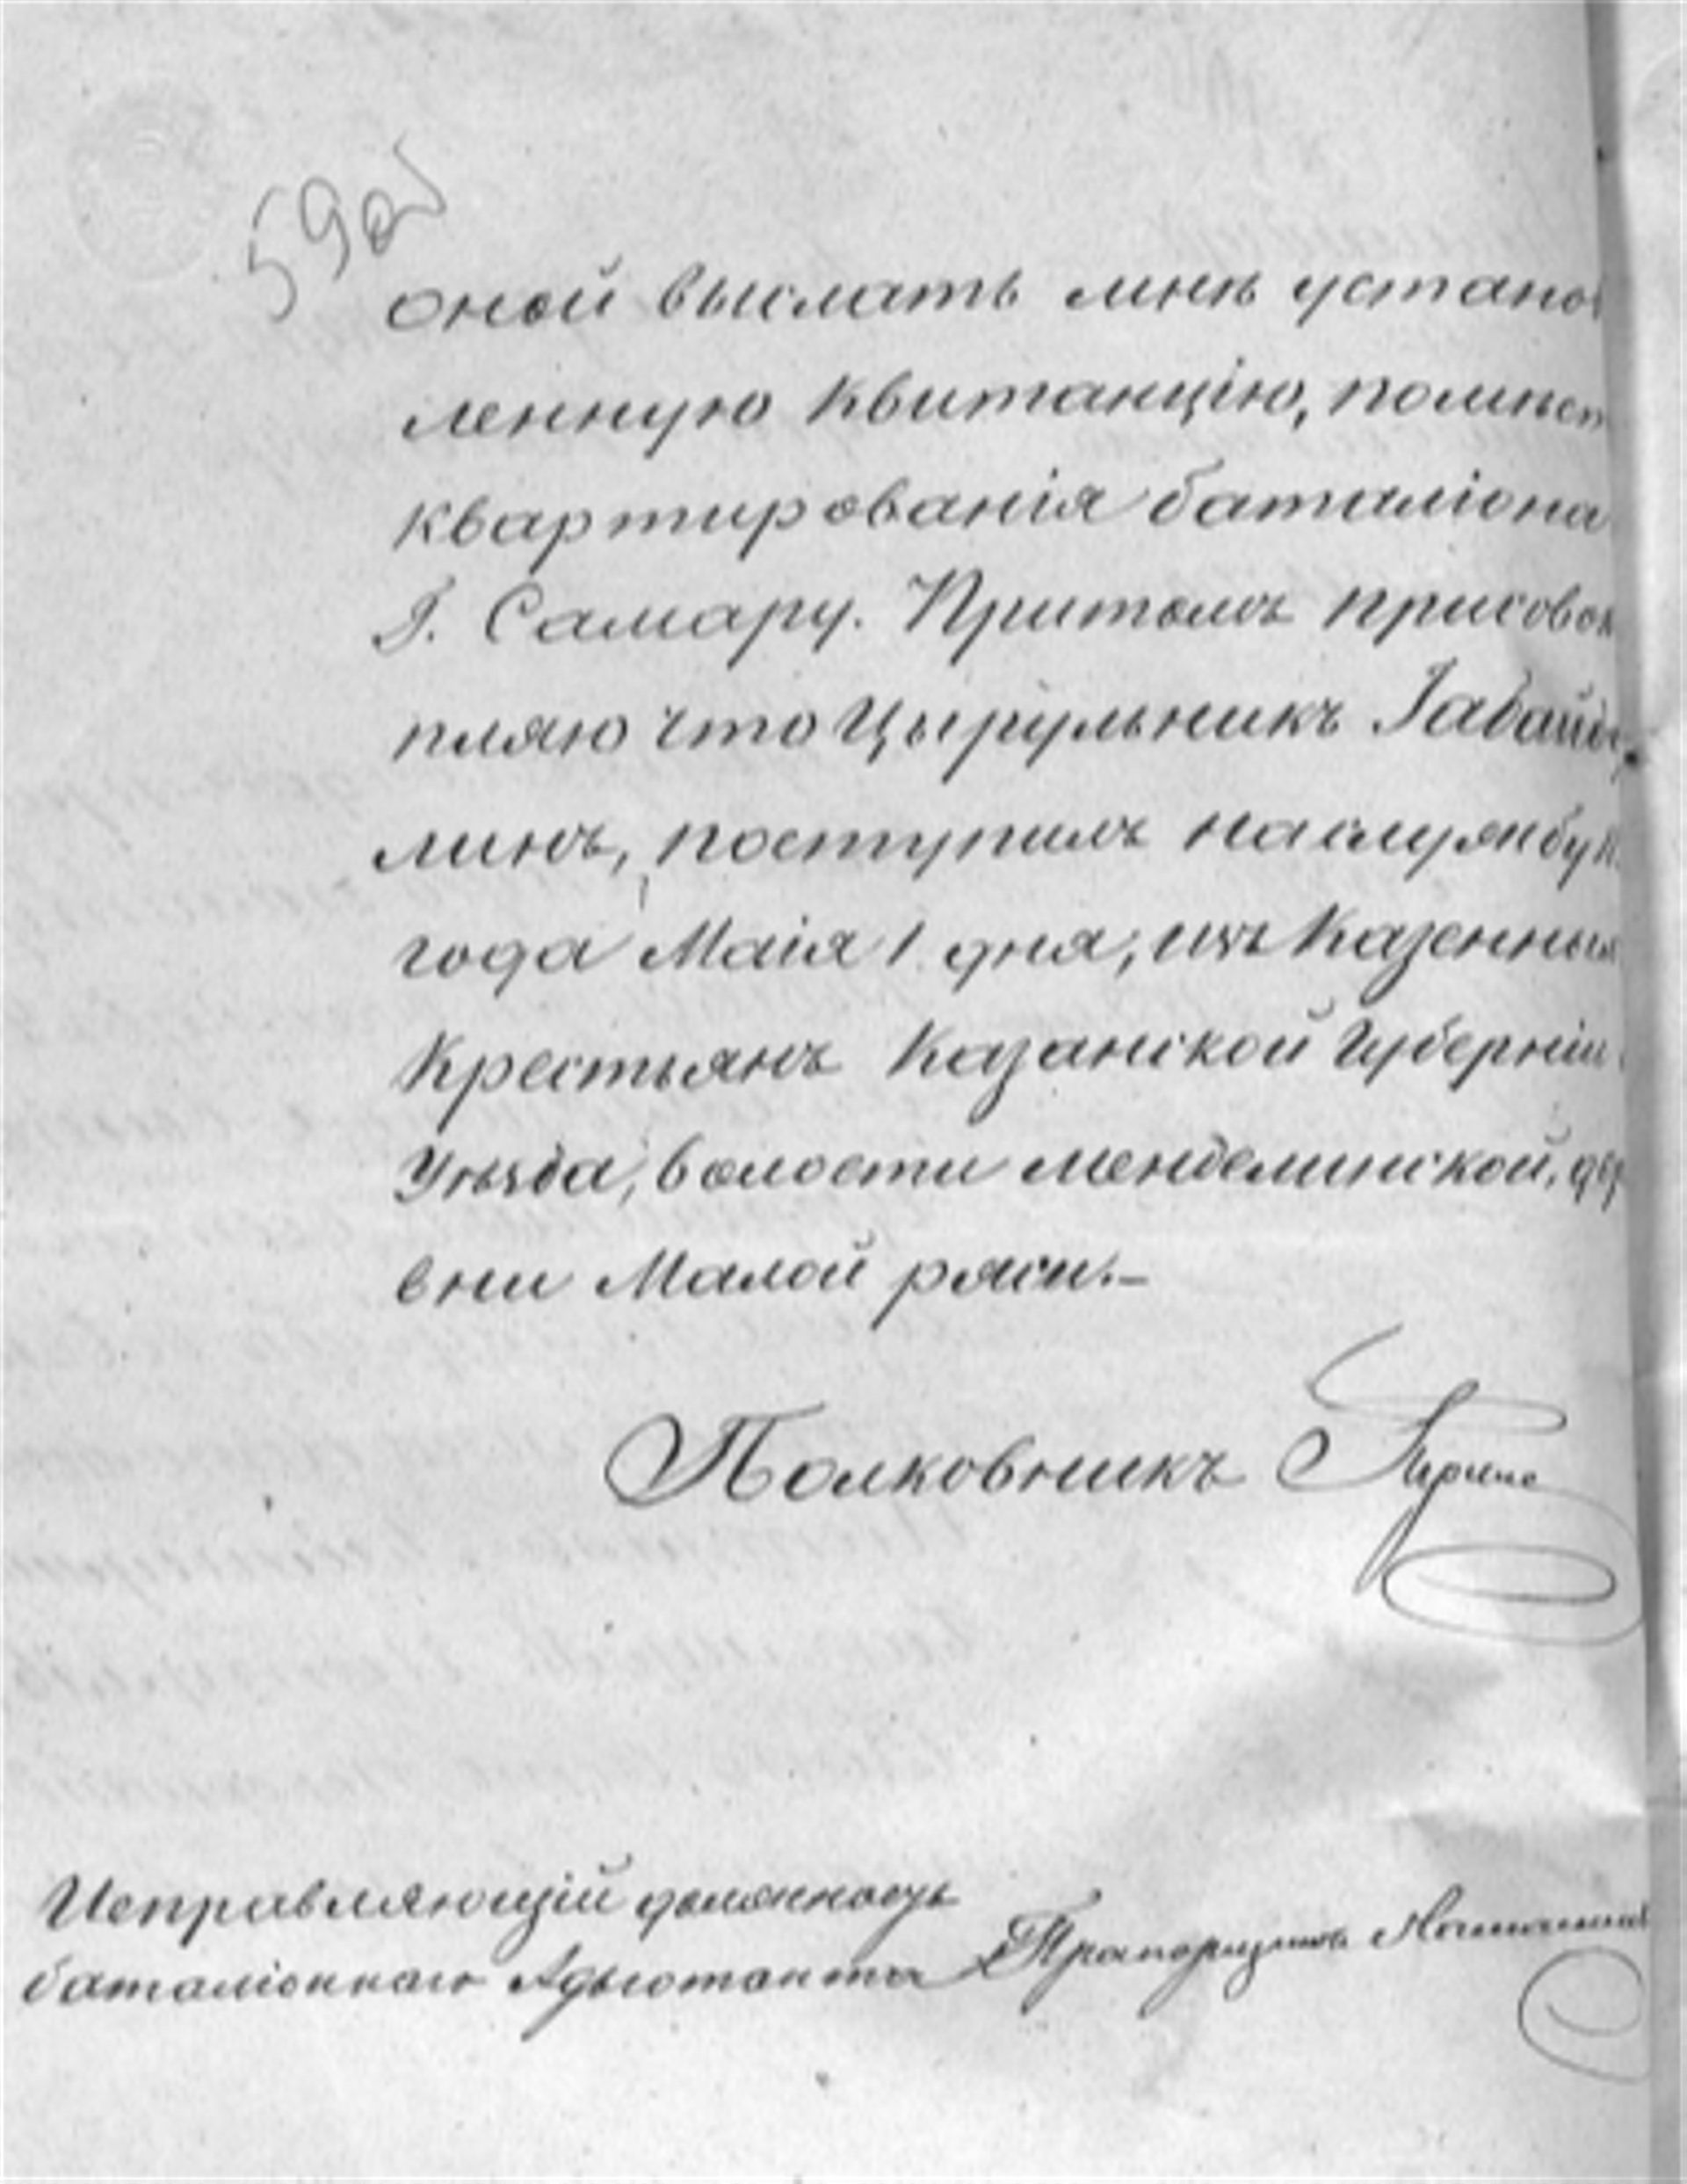 59об
оной выслать мнѣ устано
ленную Квитанцію, помѣст
квартированія баталіона
Г. Самару. Притомъ присовок
пляю что Цырульникъ Габайд
линъ, поступилъ на службу
года Маія 1 дня, изъ Казенных
Крестьянъ Казанской Губерніи
Уѣзда, волости менделинской, дер
вни Малой ряси.–
Полковникъ
Исправляющій должность
баталіоннаго Адъютанта Прапорщикъ